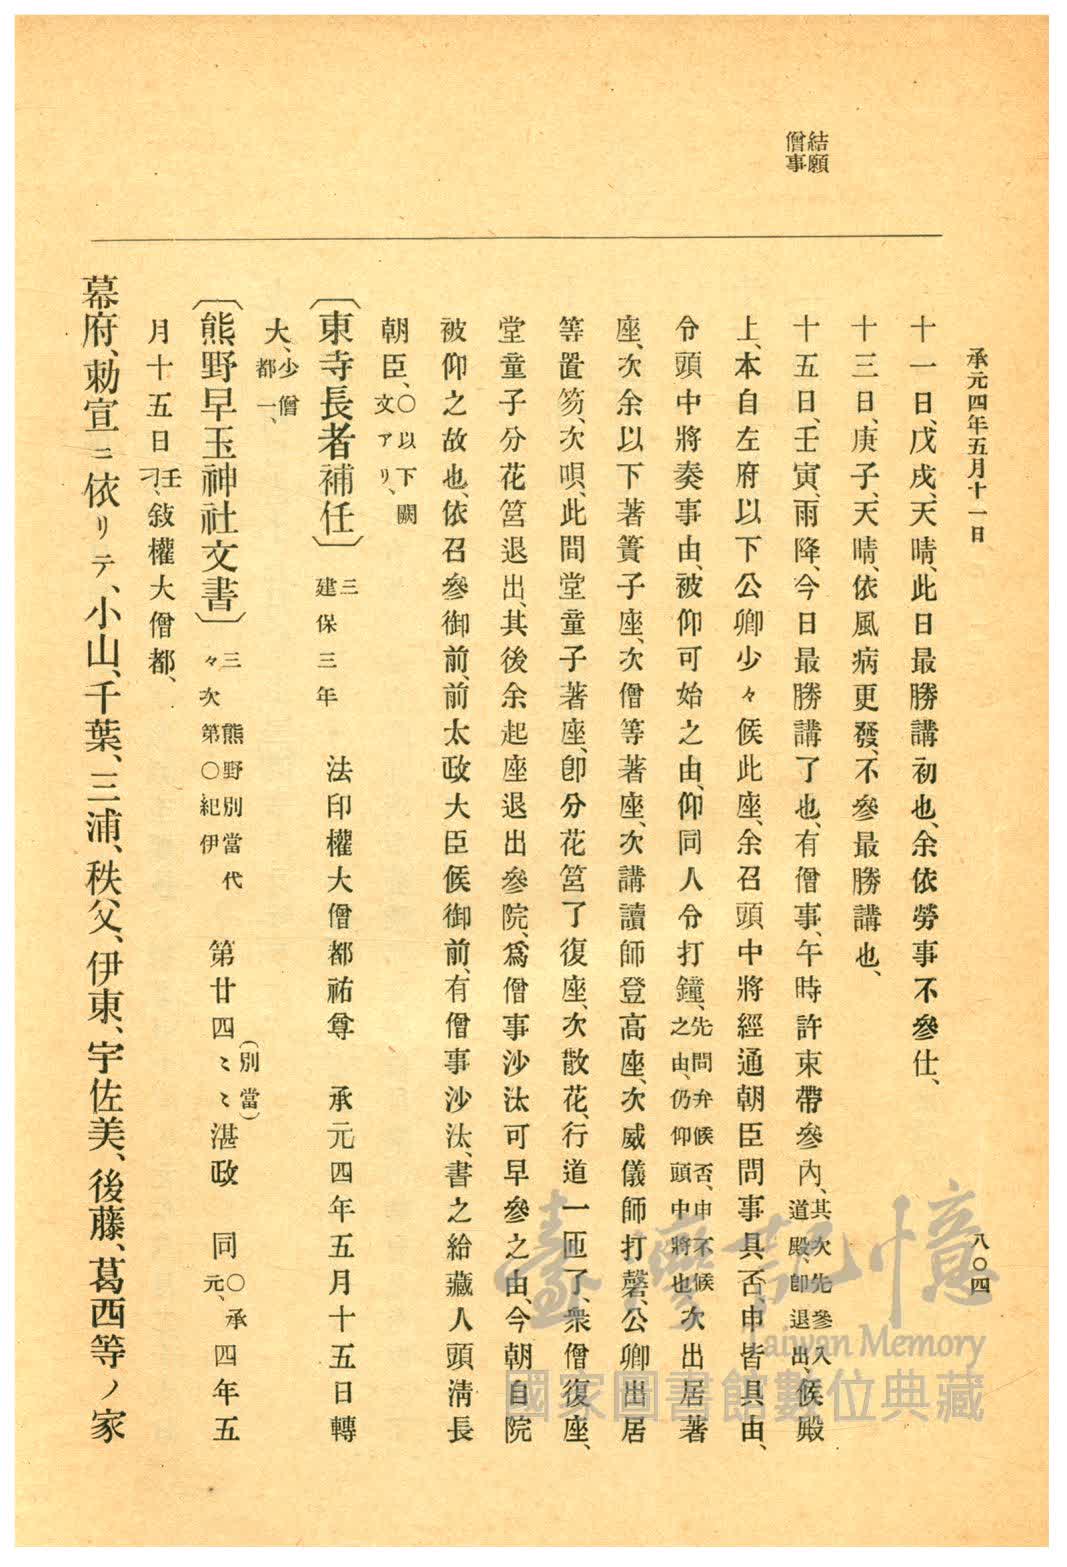 承元四年五月十一日
八〇四
結願
僧事
十一日、戊戌、天晴、此日最勝講初也、余依勞事不參仕、
十三日、庚子、天晴、依風病更發、不參最勝講也、
十五日、壬寅、雨降、今日最勝講了也、有僧事、午時許束帶參內、其次先參入道殿、卽退出、候殿
上、本自左府以下公卿少々候此座、余召頭中將經通朝臣問事具否、申皆具由、
令頭中將奏事由、被仰可始之由、仰同人令打鐘、先問弁候否、申不候之由、仍仰頭中將也、次出居著
座、次余以下著簀子座、次僧等著座、次講讀師登高座、次威儀師打磬、公卿出居
等置笏、次唄、此間堂童子著座、卽分花筥了復座、次散花、行道一匝了、衆僧復座、
堂童子分花筥退出、其後余起座退出參院、爲僧事沙汰可早參之由、今朝自院
被仰之故也、依召參御前、前太政大臣候御前、有僧事沙汰、書之給藏人頭淸長
朝臣、〇以下闕文アリ、
〔東寺長者補任〕 三 建保三年 法印權大僧都祐尊 承元四年五月十五日轉
大、少僧都一、
〔熊野早玉神社文書〕 三 熊野別當代々次第〇紀伊 第廿四〻〻(別當)湛政 同〇承元、四年五
月十五日壬刁、敍權大僧都、
幕府、勅宣ニ依リテ、小山、千葉、三浦、秩父、伊東、宇佐美、後藤、葛西等ノ家
臺灣記憶
Taiwan Memory
國家圖書館數位典藏